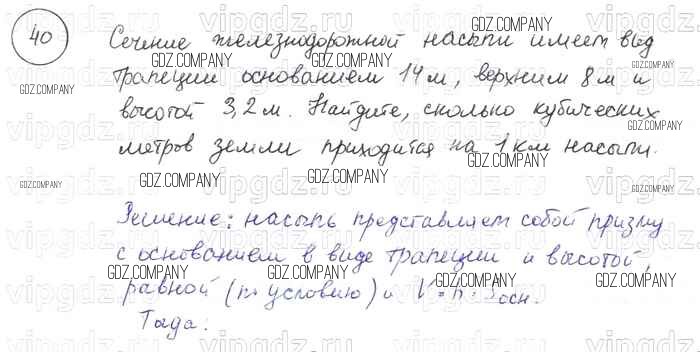 40
Сечение железнодорожной насыпи имеет вид
трапеции основанием 14 м, верхним 8 м и
высотой 3,2 м. Найдите, сколько кубических
метров земли приходится на 1 км насыпи.
Решение: насыпь представляет собой призму
с основанием в виде трапеции и высотой,
равной (по условию) и V = h · Sосн.
Тогда:
GDZ.COMPANY
vipgdz.ru